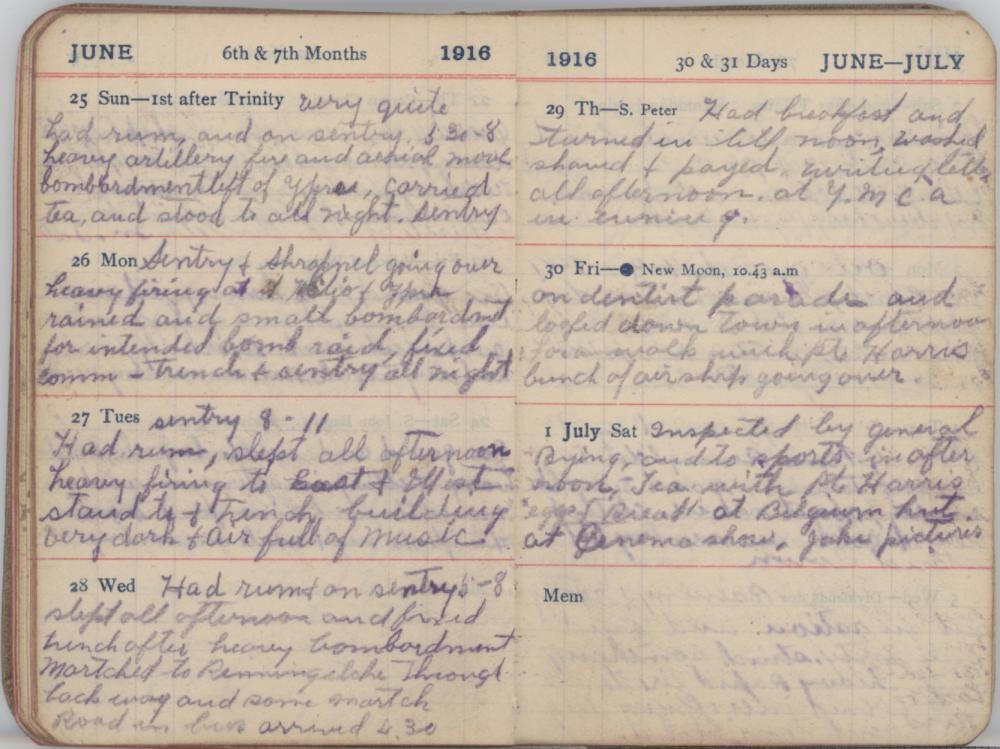 JUNE 6th & 7th Months 1916
25 Sun—1st after Trinity very quite
had rum, and on sentry 5 30-8
heavy artillery fire and aerial
bombardment left of Ypres, carried
tea, and stood to all night. Sentry
26 Mon Sentry & Shrapnel going over
heavy firing at
rained and small bombardmt
for intended bomb raid, fixed
comm - trench & sentry all night
27 Tues sentry 8 - 11
Had rum, slept all afternoon
heavy firing to East & West
stand to & trench building
very dark & air full of music.
28 Wed Had rum & on sentry 5-8
slept all afternoon and fixed
trench after heavy bombardment
Martched to Through
back way and some martch
Road in bus arrived 4.30
1916 30 & 31 Days JUNE—JULY
29 Th—S. Peter Had breakfast and
turned in till noon, washed
shaved & payed. writing letter
all afternoon. at Y. M C A
in evening.
30 Fri—● New Moon, 10.43 a.m
on dentist parade and
loafed down town in afternoon
for a walk with Pt. Harris
bunch of airships going over.
1 July Sat Inspected by general
Bying, and to sports in after
noon, Tea with Pt Harris
eggs at Belgium hut
at Cinema show, pictures
Mem